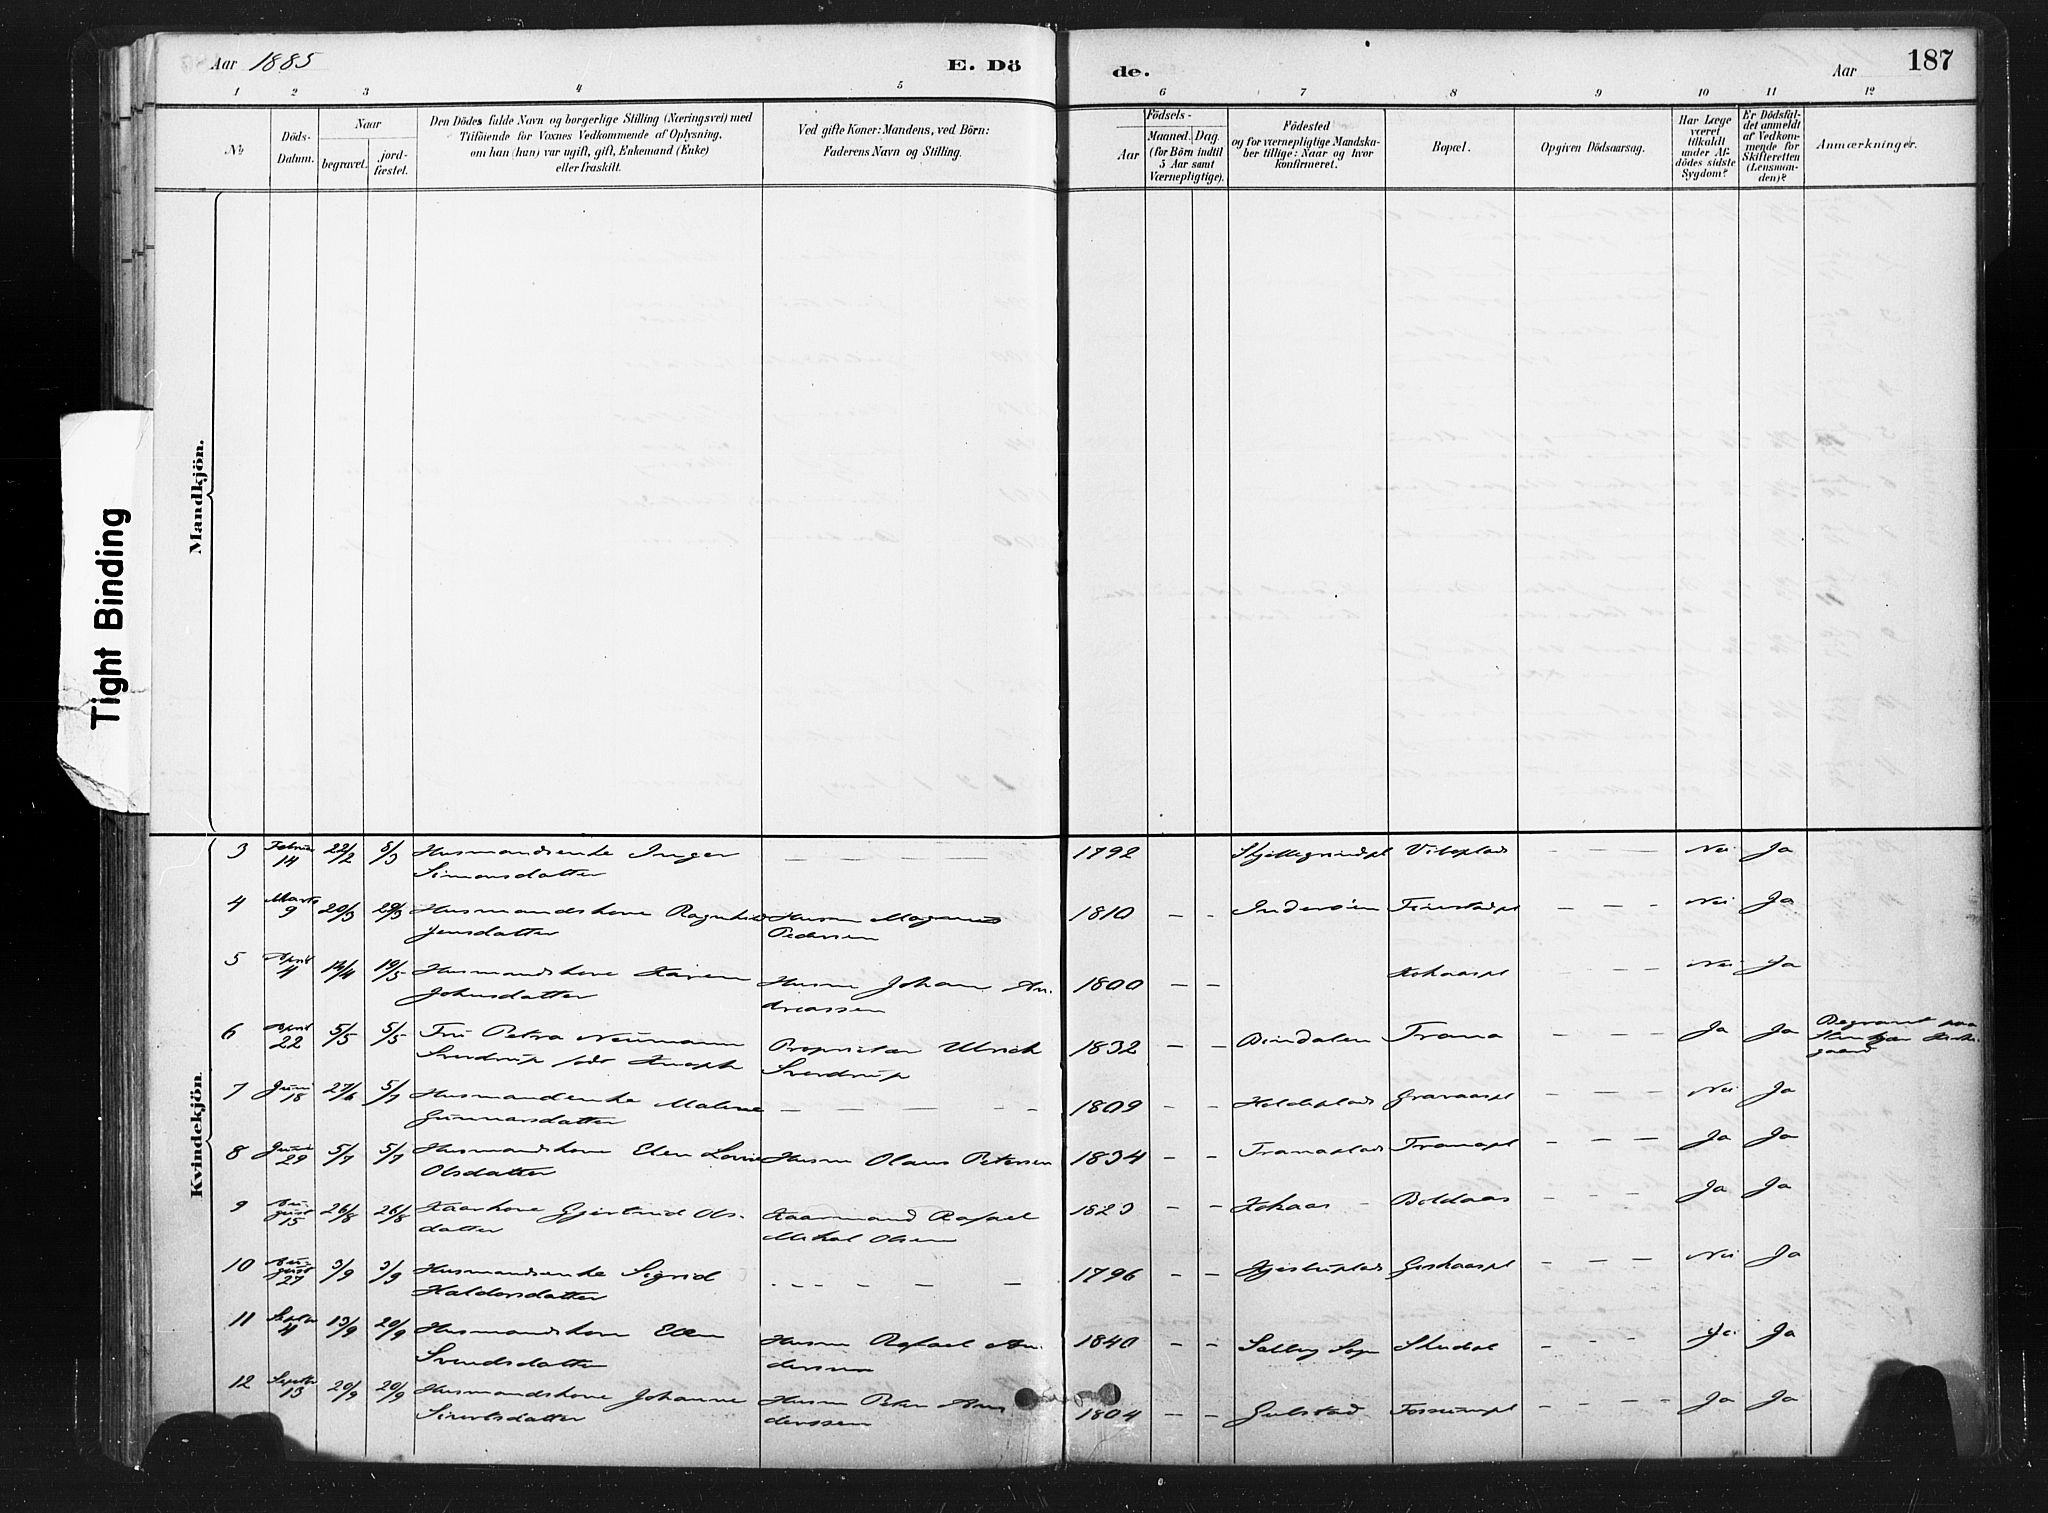 Aar 1885
E. Dö
de.
Aar
187
1 2 3 4 5 6 7 8 9 10 11 12
№
Döds-
Datum.
Naar
begravet.
jord-
fæstet.
Den Dödes fulde Navn og borgerlige Stilling (Næringsvei) med
Tilföiende for Voxnes Vedkommende af Oplysning,
om han (hun) var ugift, gift, Enkemand (Enke)
eller fraskilt.
Ved gifte Koner: Mandens, ved Börn:
Faderens Navn og Stilling.
Aar
Födsels-
Maaned. Dag.
(for Börn indtil
5 Aar samt
Værnepligtige).
Födested
og for værnepligtige Mandska-
ber tillige: Naar og hvor
konfirmeret.
Bopæl.
Opgiven Dödsaarsag.
Har Læge
været
tilkaldt
under Af-
dödes sidste
Sygdom?
Er Dödsfal-
det anmeldt
af Vedkom-
mende for
Skifteretten
(Lensman-
den)?
Anmærkninger.
Mandkjön.
Tight Binding
Kvindekjön.
3 Februar 14 22/2 8/3 Husmandsenke Inger Simonsdatter — — — — — 1792 Vibeplads — — — — Nei Ja
4 Marts 9 20/3 29/3 Husmandskone Ragnhild Jensdatter Husm Magnus Pedersen 1810 — — Inderöen — — — — Nei Ja
5 April 4 14/4 19/5 Husmandskone Karen Johnsdatter Husm Johan Andreassen 1800 — — — — — — Nei Ja
6 April 22 5/5 5/5 Fru Petra Neumann Sverdrup föd Knoph Proprietær Ulrich Sverdrup 1832 — — Bindalen Trana — — — — Ja Ja Begravet paa Stenkjær Kirkegaard
7 Juni 18 27/6 5/7 Husmandsenke Malene Gunnarsdatter — — — — — 1809 — — Holdeplads — — — — Nei Ja
8 Juni 29 5/7 5/7 Husmandskone Elen Lovise Olsdatter Husm Olaus Petersen 1834 — — Tranaplads Tranapl — — — — Ja Ja
9 August 15 26/8 26/8 Kaarkone Gjertrud Olsdatter Kaarmand Rafael Mikal Olsen 1823 — — — Boldaas — — — — Ja Ja
10 August 27 3/9 3/9 Husmandsenke Sigrid Haldorsdatter — — — — — 1796 — — — — — — Nei Ja
11 Septbr 4 13/9 20/9 Husmandskone Ellen Svendsdatter Husm Rafael Andersen 1840 — — Salberg Sogn — — — — Ja
12 Septbr 13 20/9 20/9 Husmandskone Johanne Sivertsdatter Husm Peter Anderssen 1804 — — Gulstad Fossumpl — — — — Ja Ja